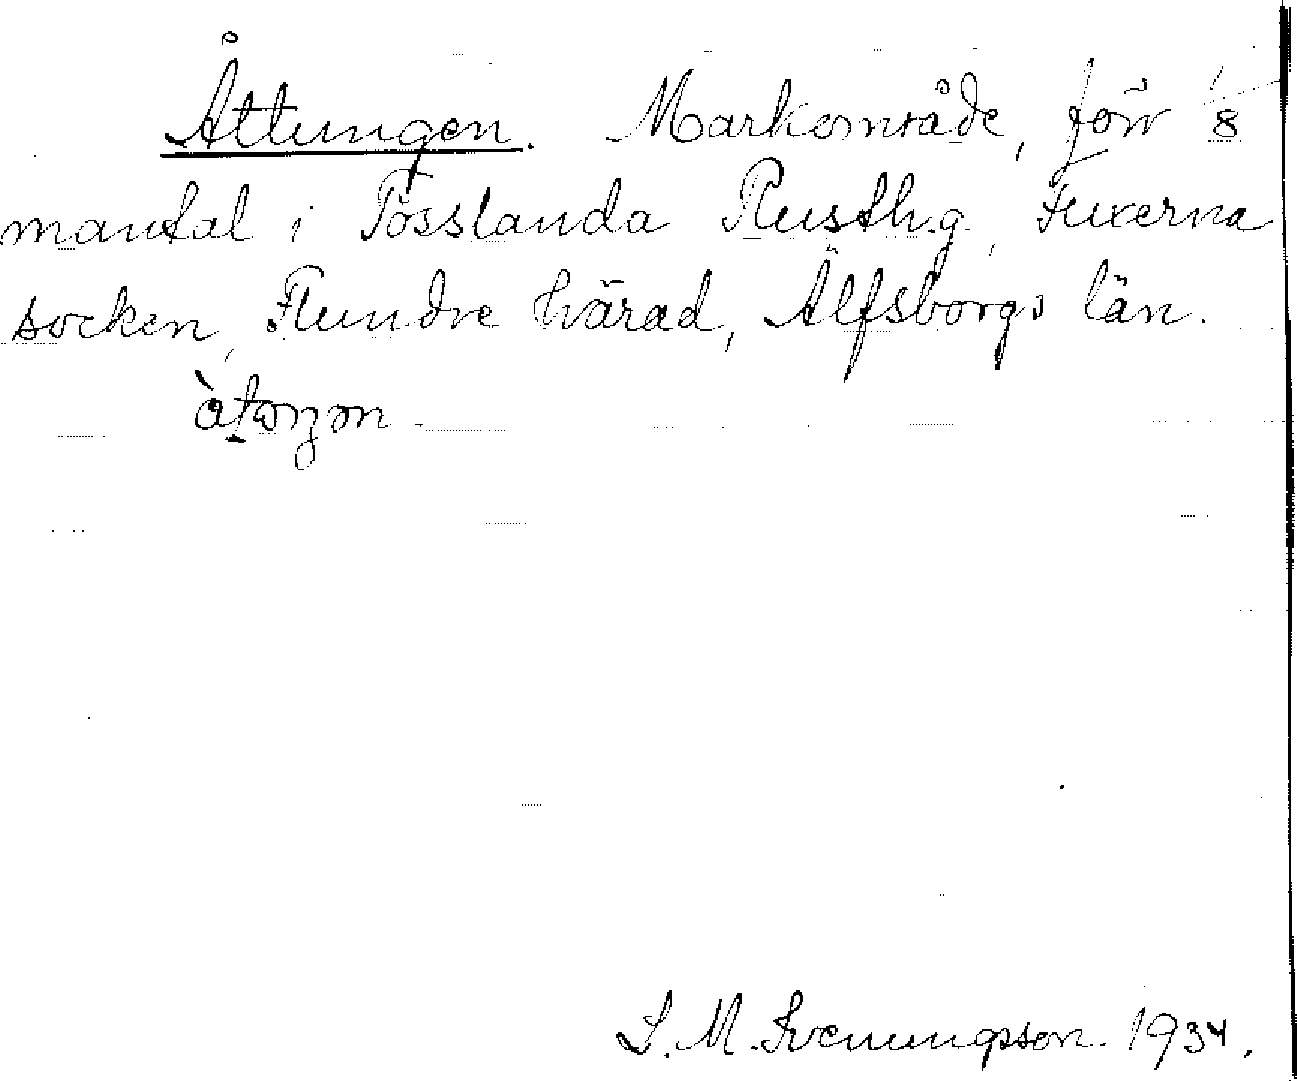 Åttungen. Markområde, förr 1/8
mantal i Tosslanda Rusth.g, Fuxerna
socken, Flundre härad, Älfsborgs län.
S. M. Svenungsson. 1934.